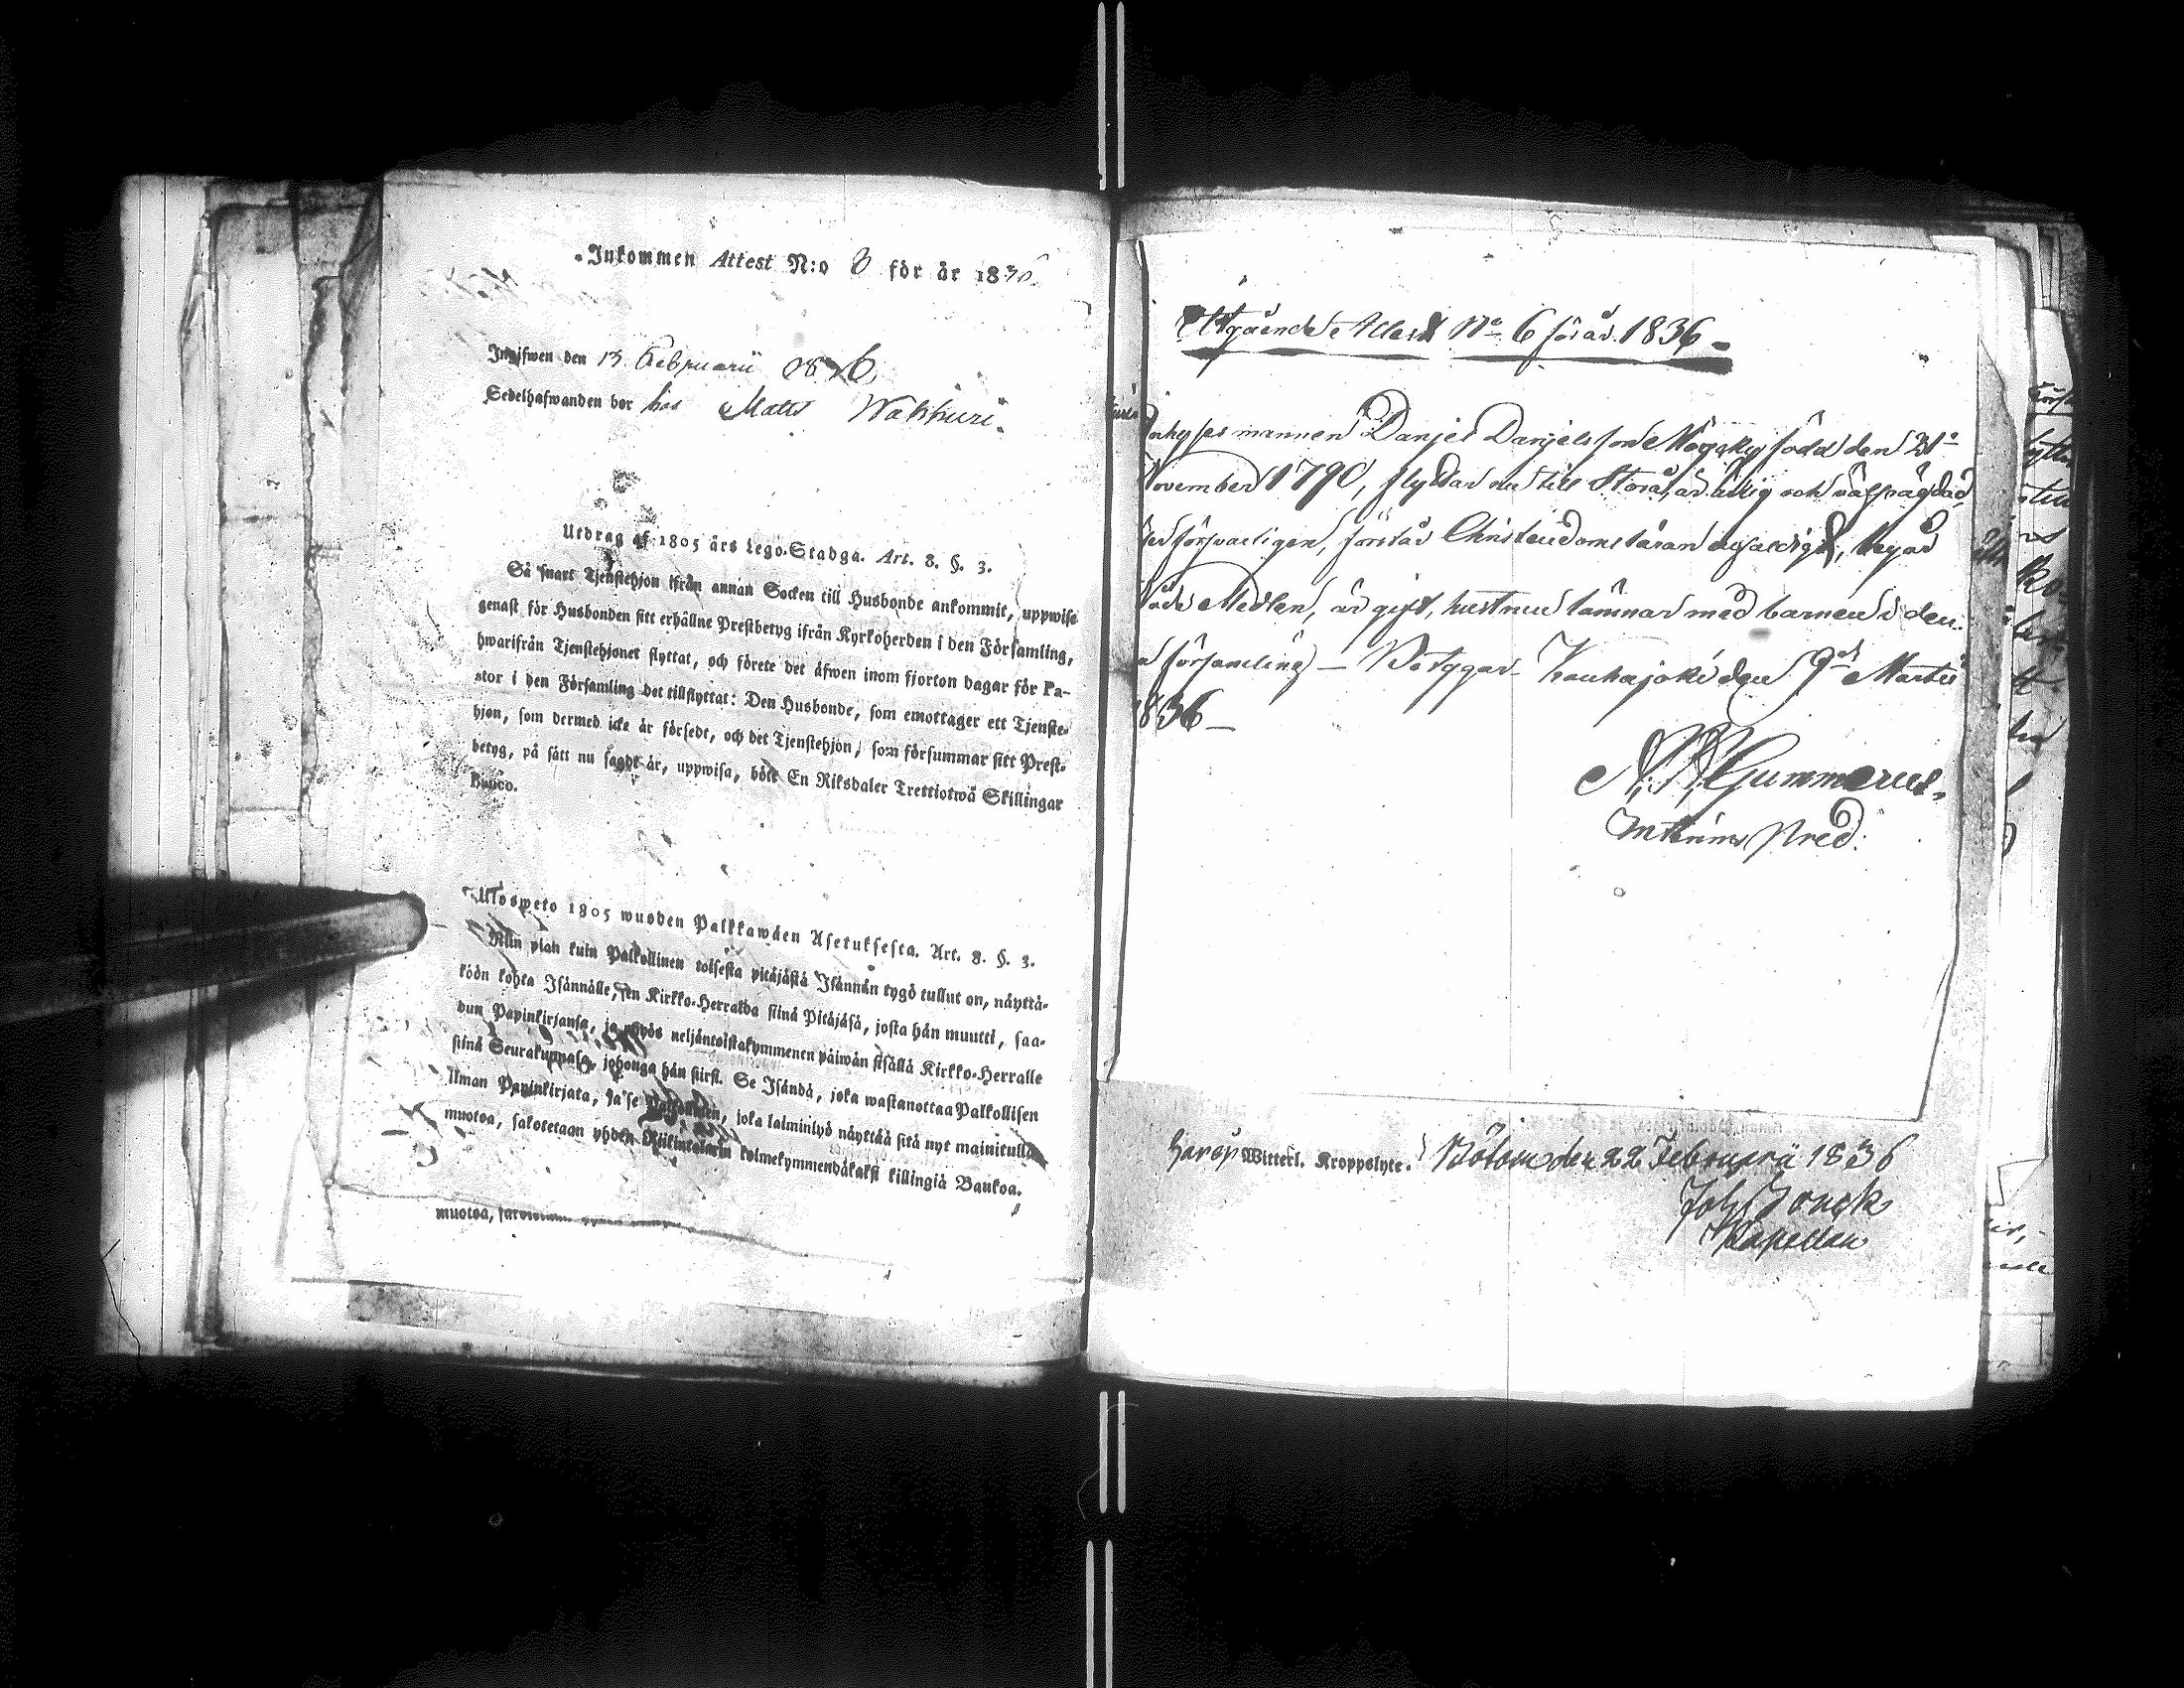 Inkommen Attest N:o 8 för år 1836.
Inskrifwen den 13 Februarii 1836
Sedelhafwanden bor hos Matts Wakkuri.
Utdrag af 1805 års Lego-Stadga. Art. 8. §. 3.
Så snart Tjenstehjon ifrån annan Socken till Husbonde ankommit, uppwise
genast för Husbonden sitt erhållne Prestbetyg ifrån Kyrkoherden i den Församling,
hwarifrån Tjenstehjonet flyttat, och förete det äfwen inom fjorton dagar för Pa-
stor i den Församling det tillflyttat: Den Husbonde, som emottager ett Tjenste-
hjon, som dermed icke är försedt, och det Tjenstehjon, som försummar sitt Prest-
betyg, på sätt nu sagdt är, uppwisa, böte En Riksdaler Trettiotwå Skillingar
Banco.
Ulosweto 1805 wuoden Palkkawäen Asetuksesta. Art. 8. §. 3.
Niin pian kuin Palkollinen toisesta pitäjästä Isännän tygö tullut on, näyttä-
köön kohta Isännälle, sen Kirkko-Herralda siinä Pitäjäsä, josta hän muutti, saa-
dun Papinkirjansa, ja myös neljäntoistakymmenen päiwän sisällä Kirkko-Herralle
siinä Seurakunnasa, johonga hän siirsi. Se Isändä, joka wastanottaa Palkollisen
ilman Papinkirjata, ja se Palkollinen, joka laiminlyö näyttää sitä nyt mainitulla
muotoa, sakotetaan yhden Riikintalarin kolmekymmendäkaksi killingiä Bankoa.
muotoa,
Utgående Attest No 6 för år 1836
mannen Danjel Danjelsson född den 21
November 1790, flyttar nu till Storå, är ärlig och
försvarligen, förstår Christendoms läran begår
Medlen, är gift, hustrun lämnar med barnen i den
församling – Betygar Kauhajoki den 9de Martii
1836 –
Gummerus.
Interims Pred:
Witterl. Kroppslyte. Bötom den 22 Februarii 1836
Joh. Jonck
Kapellan